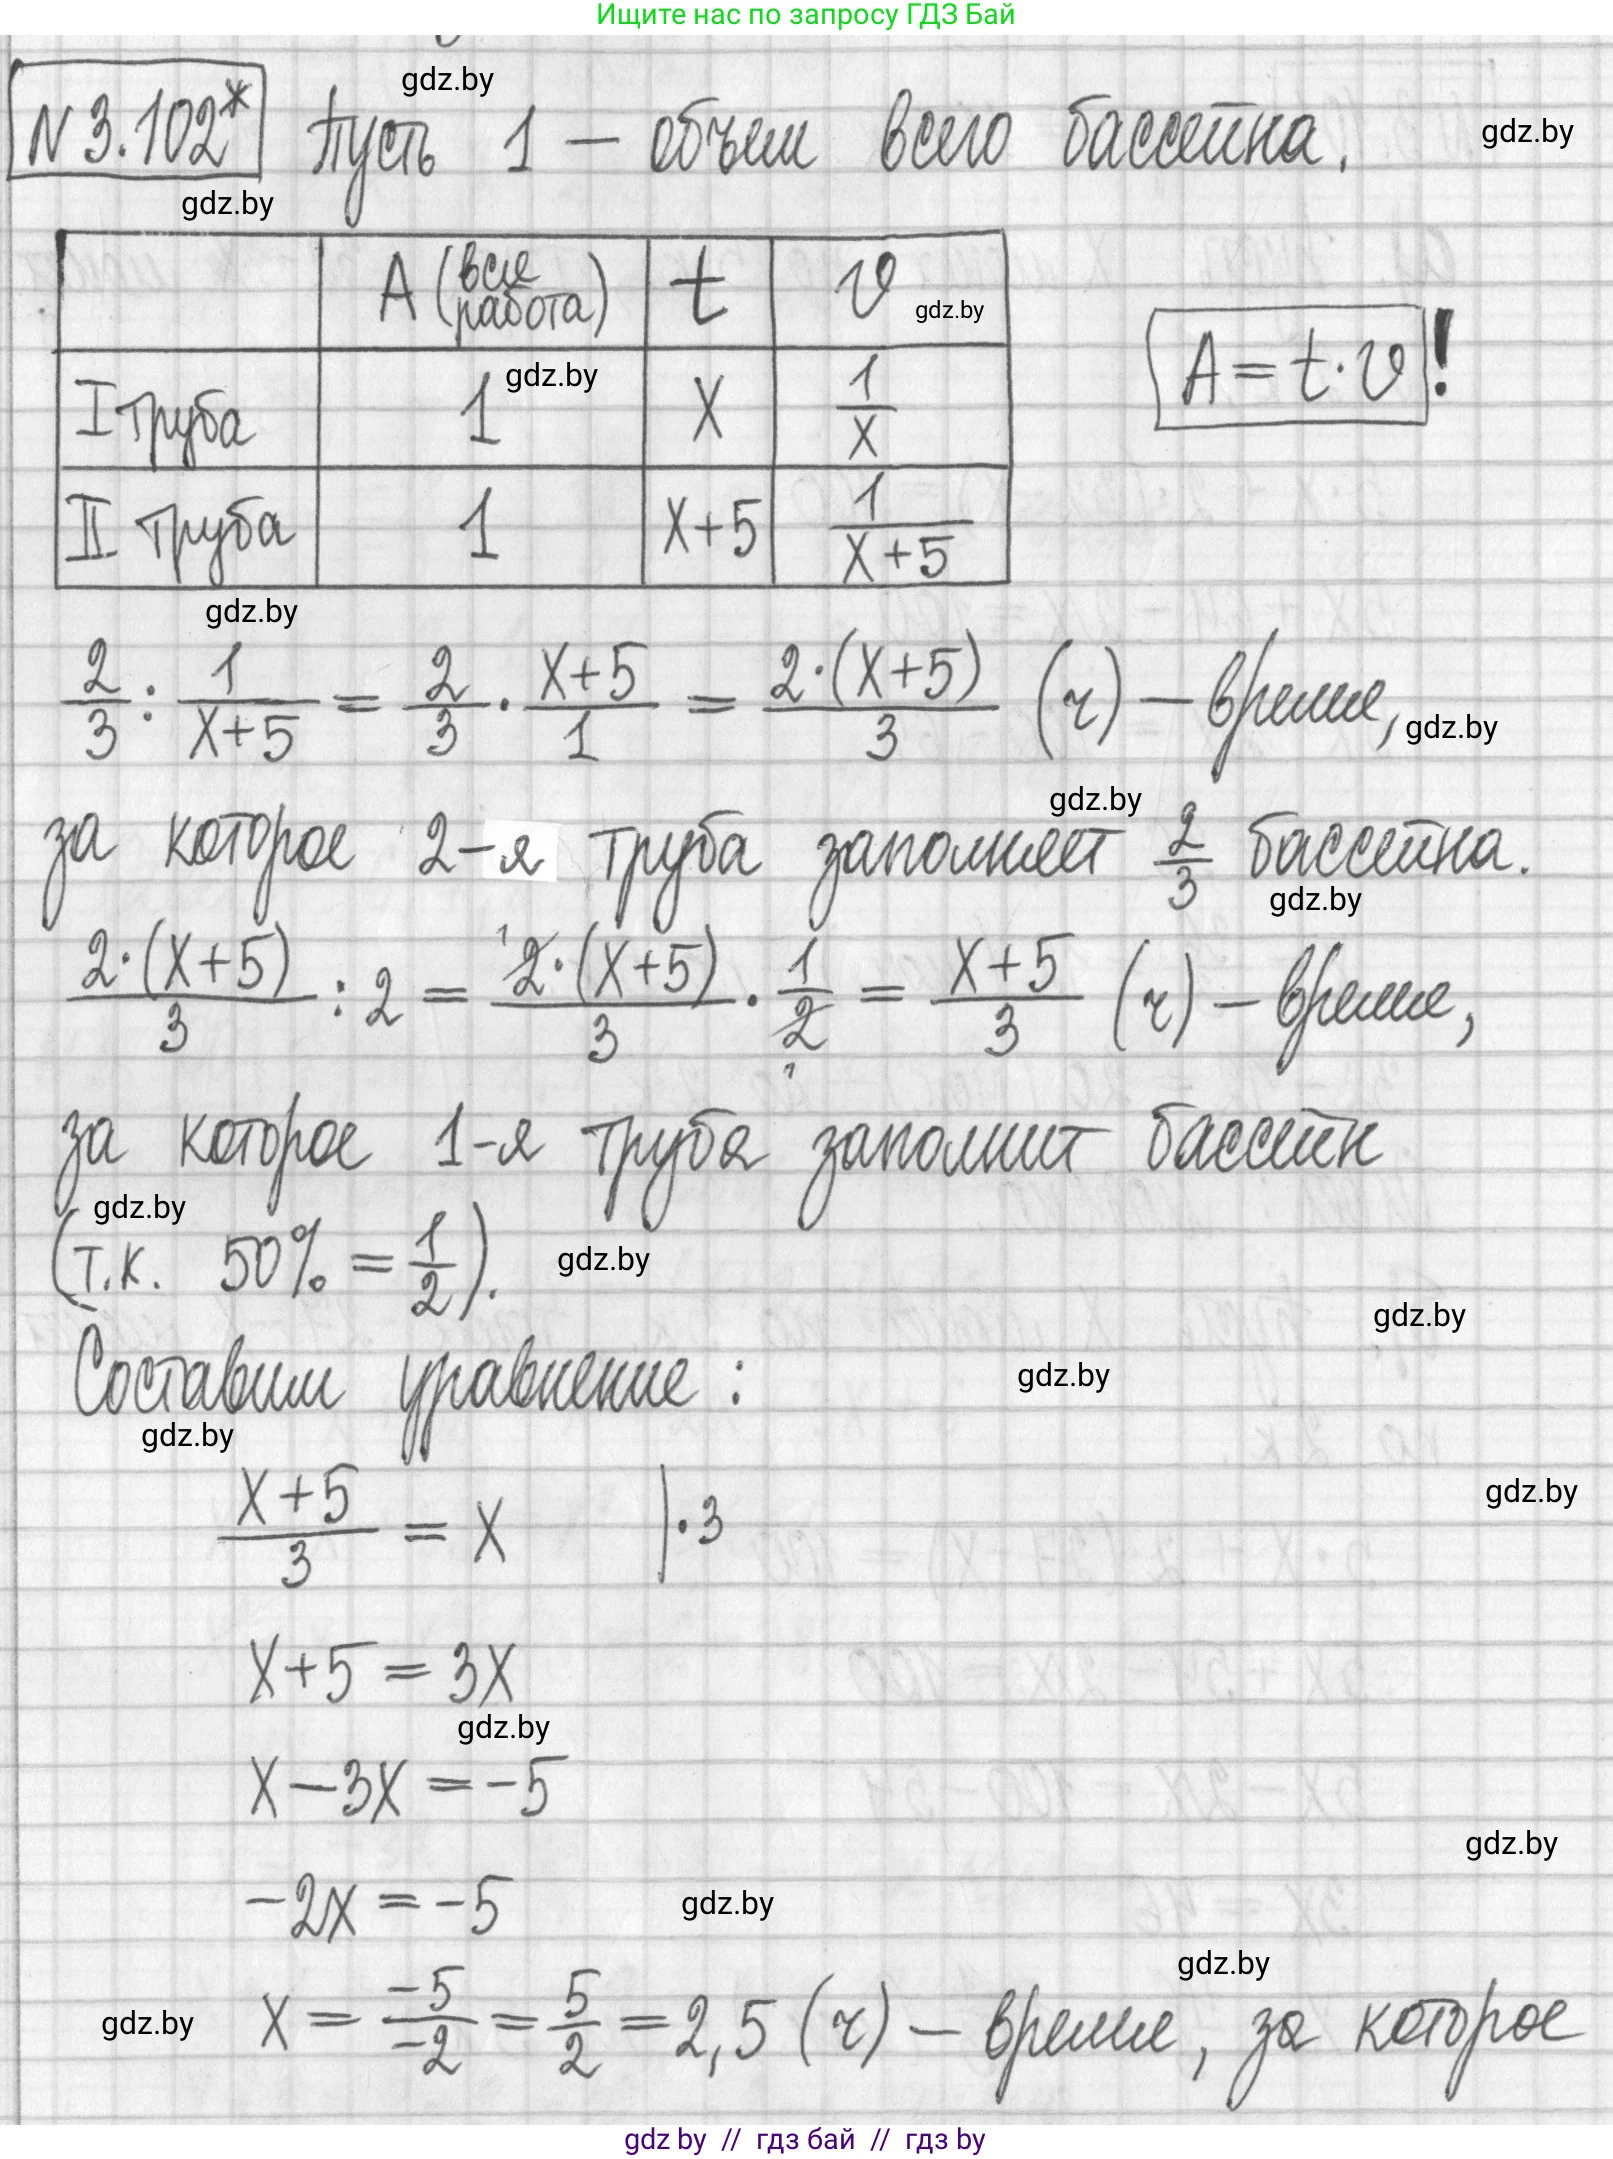 Ищите нас по запросу ГДЗ Бай
gdz.by
N 3.102* Пусть 1 – объем всего бассейна. gdz.by
gdz.by
A (вся работа) t v gdz.by
I труба 1 gdz.by x 1/x
A = t · v !
II труба 1 x+5 1/(x+5)
gdz.by
2/3 : 1/(x+5) = 2/3 · (x+5)/1 = 2·(x+5)/3 (ч) – время, gdz.by
gdz.by
за которое 2-я труба заполняет 2/3 бассейна.
gdz.by
2·(x+5)/3 : 2 = 2·(x+5)/3 · 1/2 = (x+5)/3 (ч) – время,
за которое 1-я труба заполнит бассейн
gdz.by
(т.к. 50% = 1/2). gdz.by
gdz.by
Составим уравнение : gdz.by
gdz.by
(x+5)/3 = x | · 3 gdz.by
x+5 = 3x
gdz.by
x – 3x = –5
gdz.by
–2x = –5 gdz.by
gdz.by
gdz.by x = –5/–2 = 5/2 = 2,5 (ч) – время, за которое
gdz by // гдз бай // гдз by